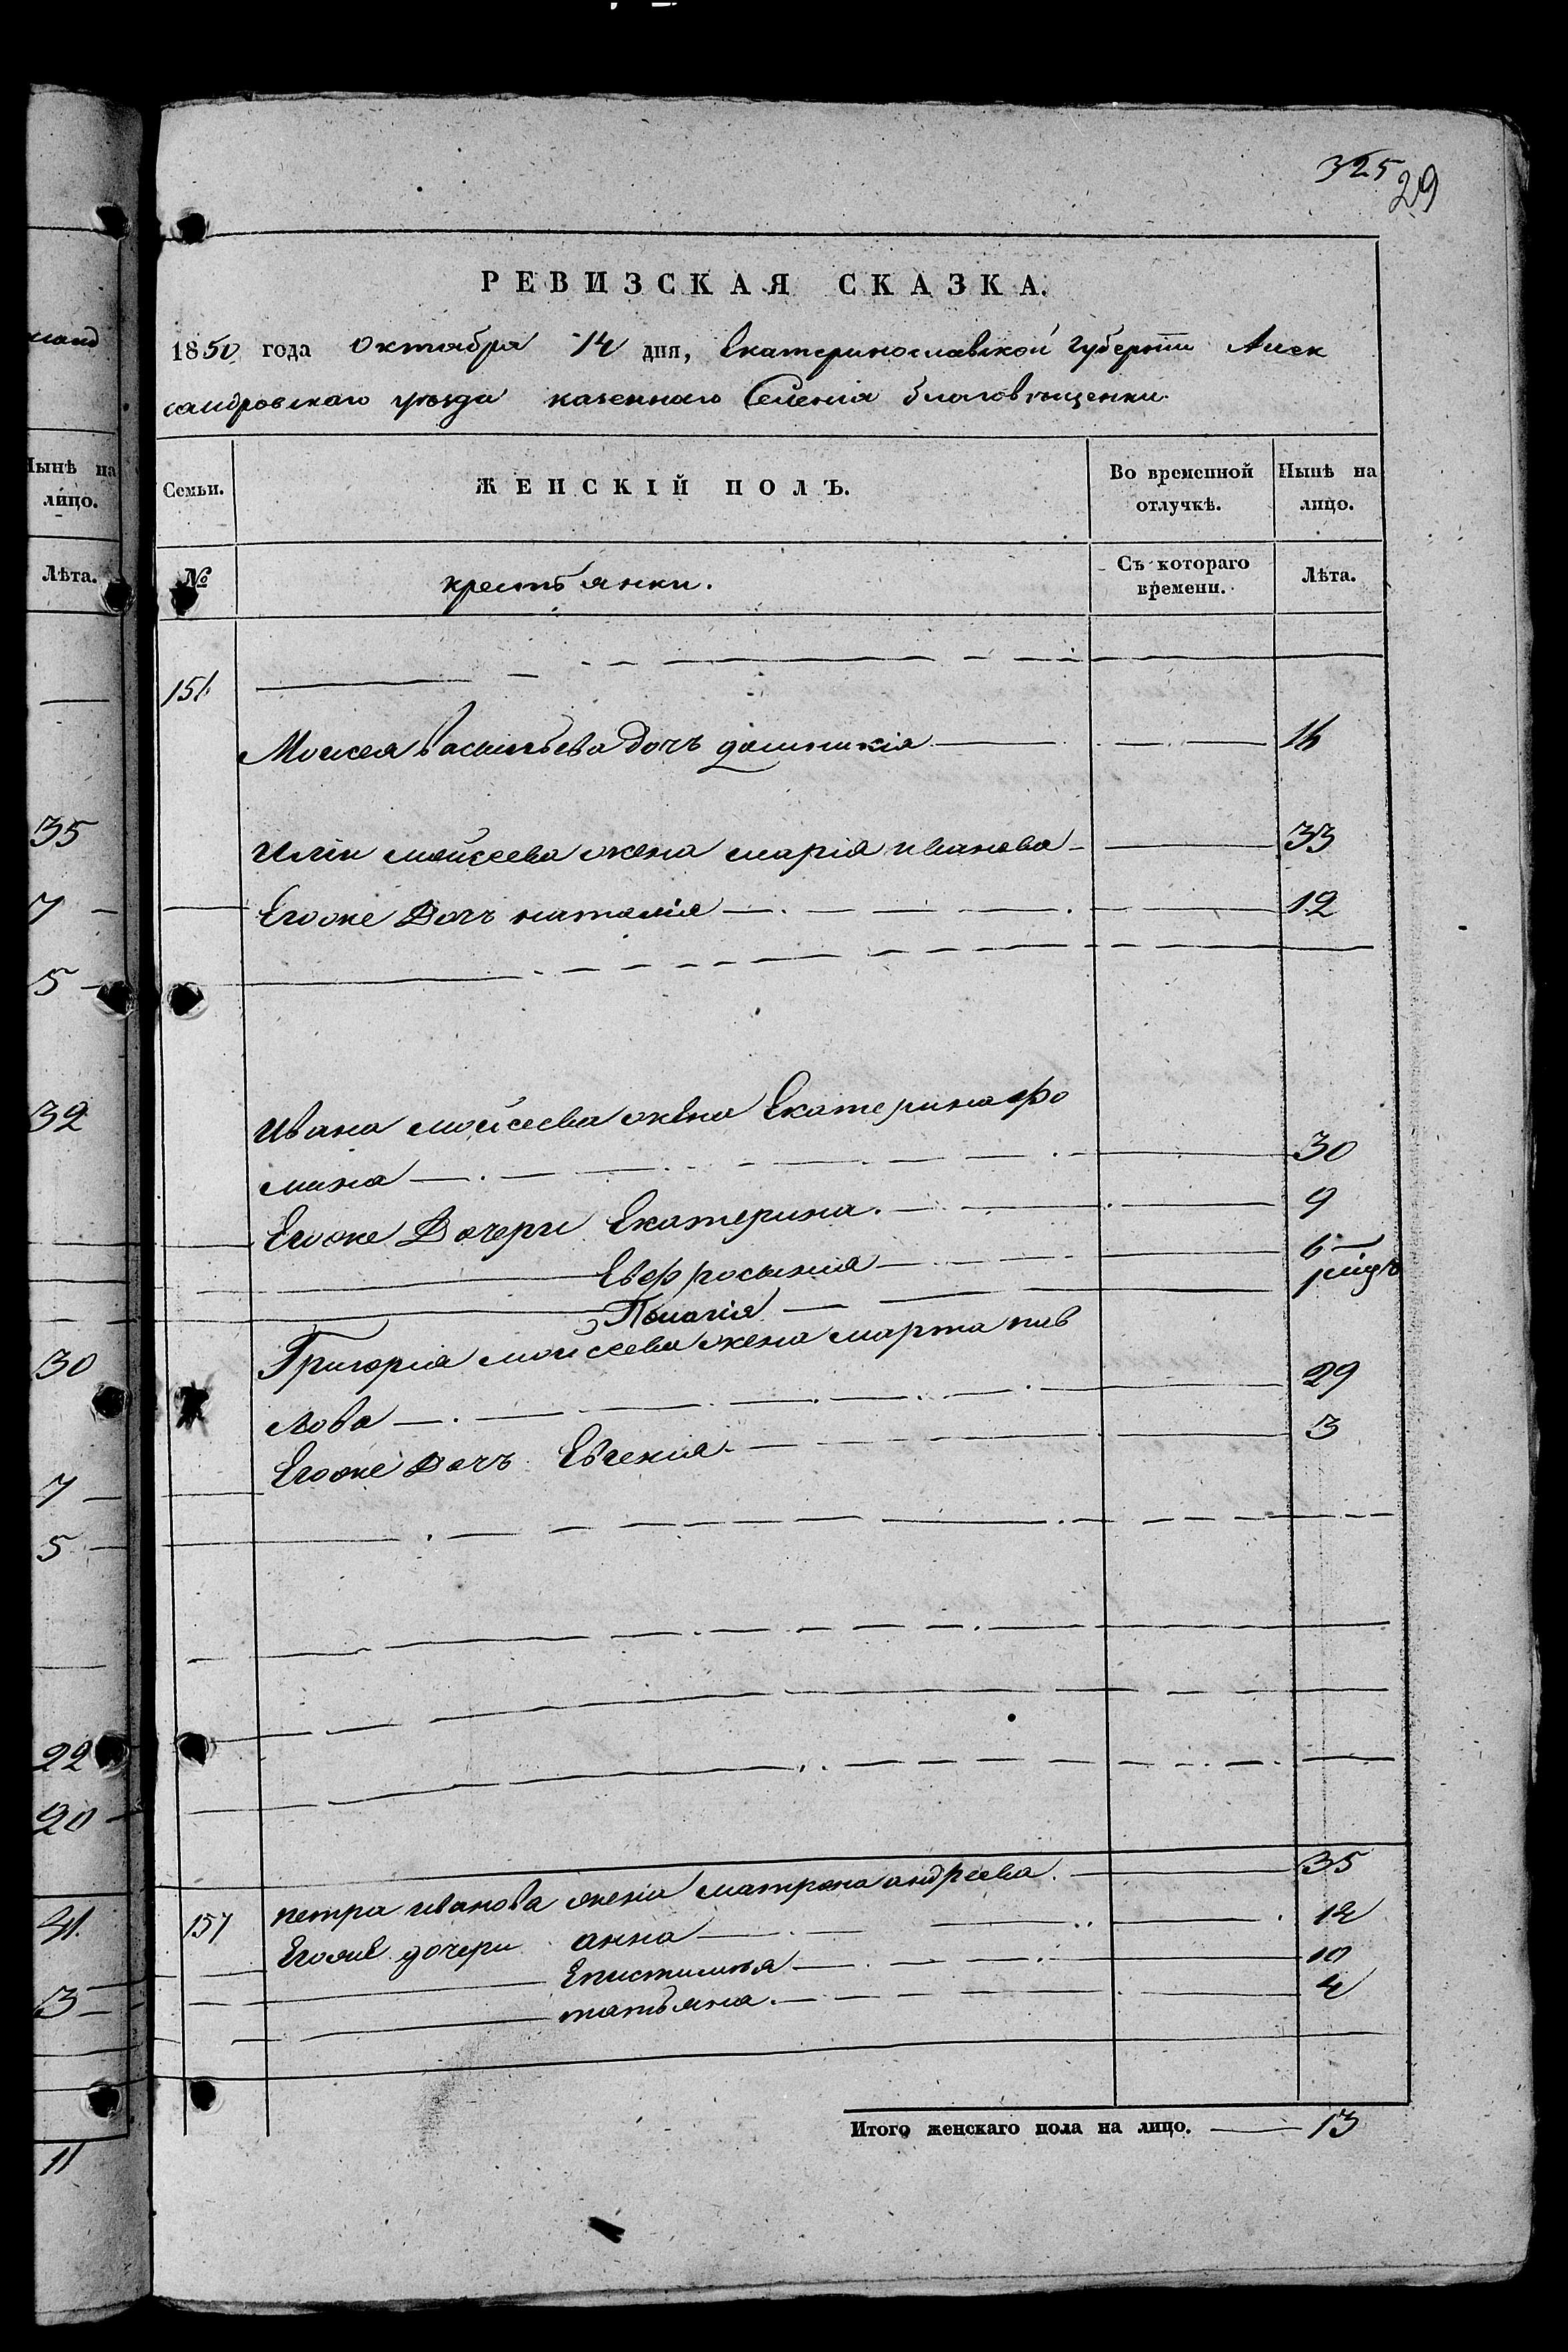 325
29
РЕВИЗСКАЯ СКАЗКА.
1850 года октября 14 дня, Екатеринославской губернии Алек
сандровскаго уѣзда казеннаго Селенія благовѣщенки
Семьи. ЖЕНСКІЙ ПОЛЪ. Во временной отлучкѣ. Нынѣ на лицо.
№ крестьянки. Съ котораго времени. Лѣта.
151
Моисея Васильева дочь 16
Илiи моисеева жена марія иванова 33
Егоже Дочь наталія 12
Ивана моисеева жена Екатерина фо
мина 30
Егоже Дочери Екатерина. 9
Евфросинія 6
Пелагія
Григорія моисеева жена марта пав
лова 29
Егоже Дочь Евгенія. 3
157 петра иванова жена матрона андреева. 35
Егоже дочери анна 12
Епистимия 10
татьяна. 4
Итого женскаго пола на лицо. 13
Нынѣ на
лицо.
Лѣта.
35
7
5
32
30
7
5
22
20
41.
3
11